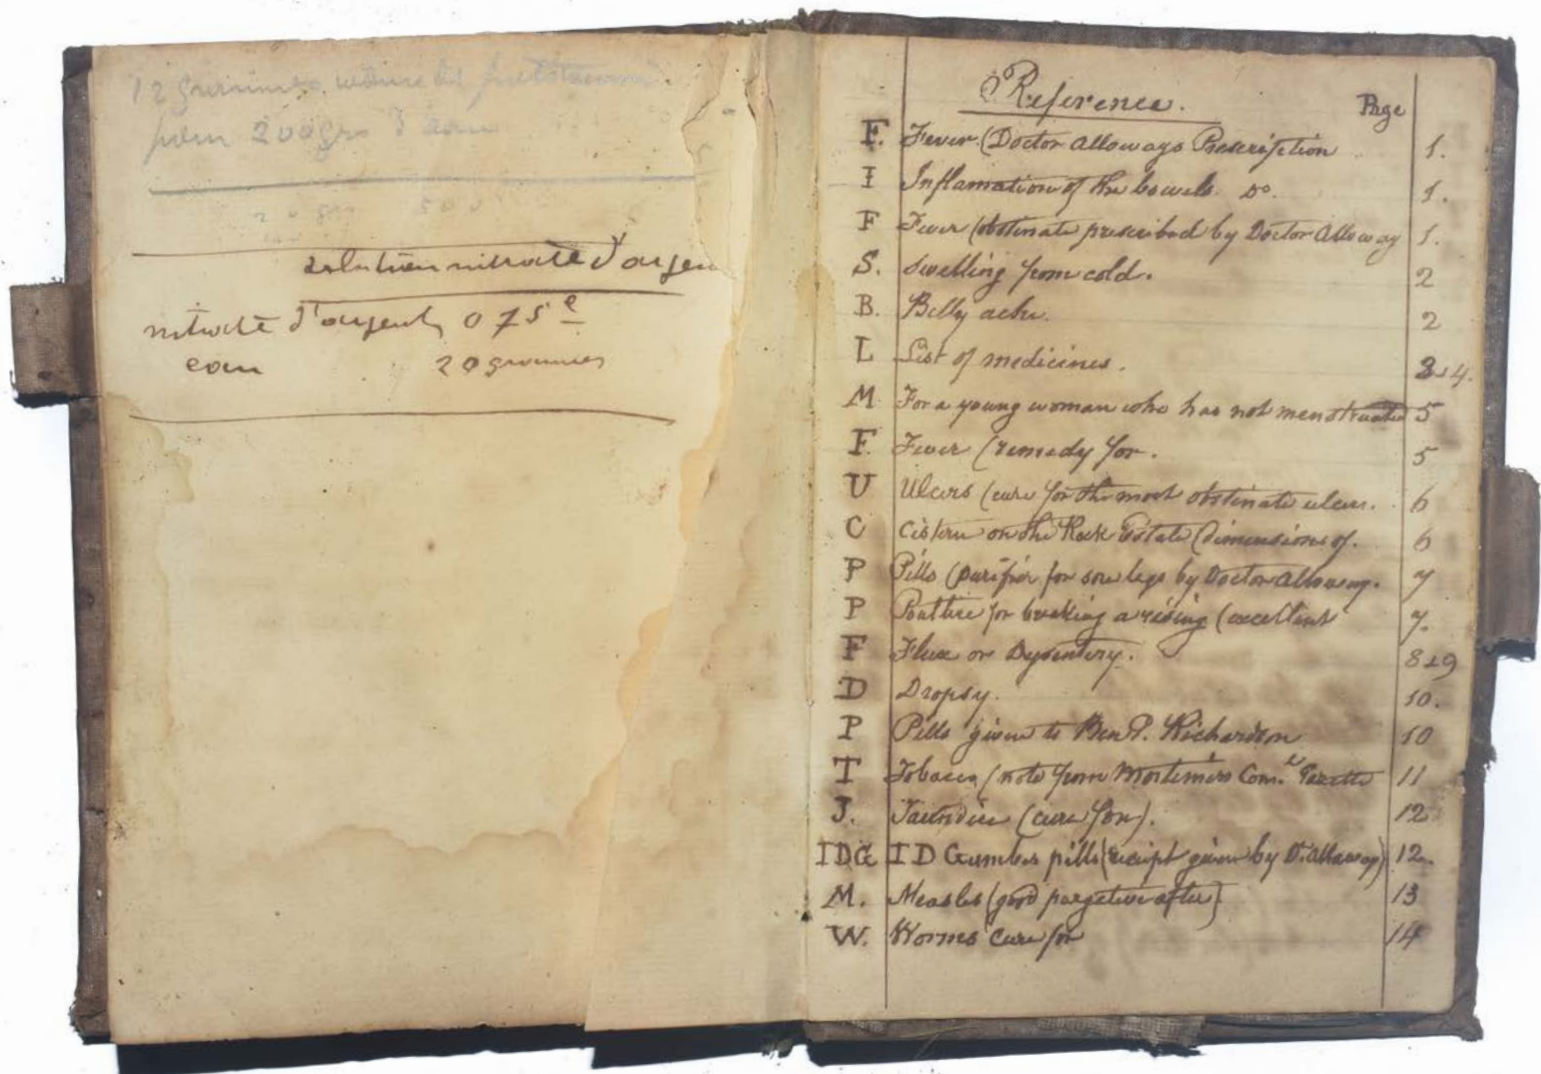 12 grammes
pour 200 grs d'eau
solution nitrate d'argen
nitrate d'argent, 0 75 e
eau 20 grammes
Reference. Page
F. Fever (Doctor Alloways Prescription 1.
I Inflamation of the bowels. Do. 1.
F Fever (obstinate prescribed by Doctor Alloway 1.
S. Swelling from cold. 2
B. Belly ache. 2
L List of medicines. 3 & 4.
M. For a young woman who has not menstruated 5
F. Fever (remedy for. 5
U Ulcers (cure for the most obstinate ulcers. 6
C Cistern on the Rock Estate (dimensions of. 6
P Pills (purifier for sore legs by Doctor Alloway. 7
P Poultice for breaking a rising (excellent 7.
F Flux or Dysentery. 8 & 9
D Dropsy. 10.
P Pills given to Ben P. Richardson 10
T Tobacco (note from Mortimers Com.l Gazette 11
J. Jaundice (cure for). 12
IDG I D Gumbes pills (receipt given by Dr. Alloway) 12.
M. Measles (good purgative after) 13
W. Worms cure for 14